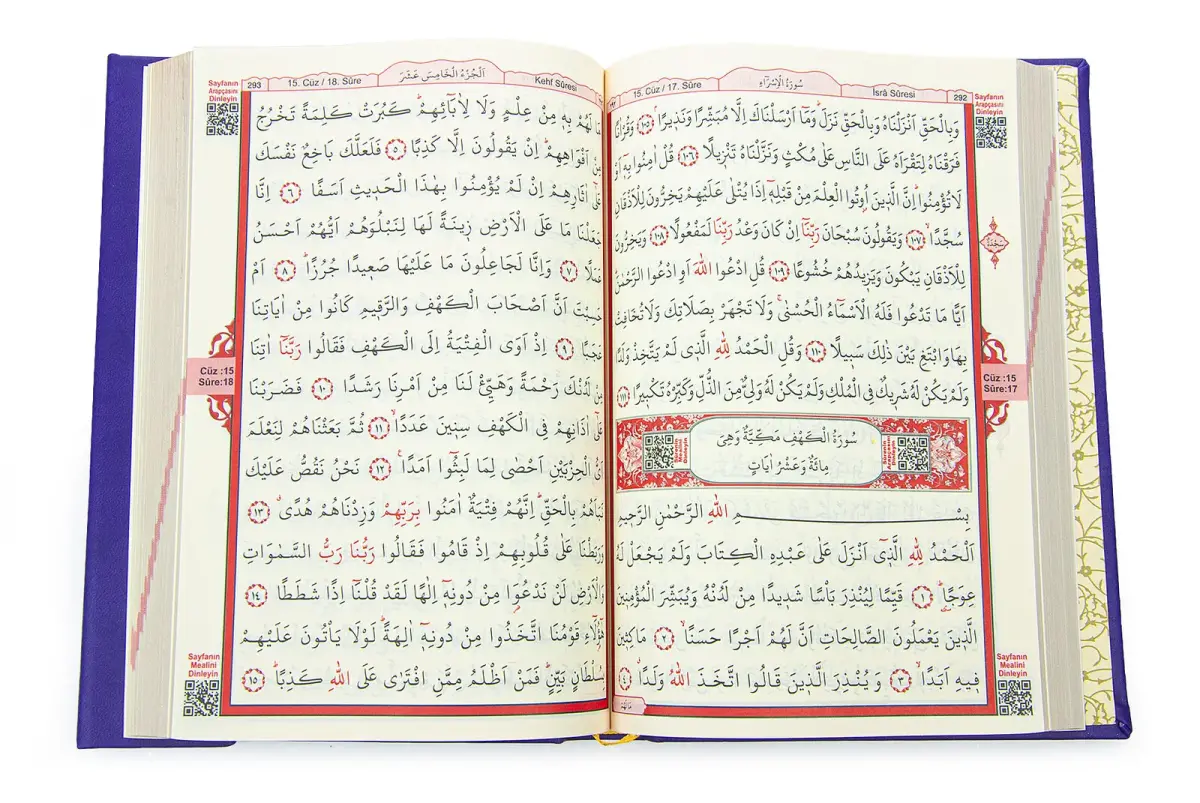 292
سُورَةُ الْإِسْرَاءِ
15. Cüz / 17. Sûre
İsrâ Sûresi
Sayfanın
Arapçasını
Dinleyin
وَبِالْحَقِّ اَنْزَلْنَاهُ وَبِالْحَقِّ نَزَلَۜ وَمَٓا اَرْسَلْنَاكَ اِلَّا مُبَشِّرًا وَنَذ۪يرًاۢ ﴿١٠٥﴾ وَقُرْاٰنًا
فَرَقْنَاهُ لِتَقْرَاَهُ عَلَى النَّاسِ عَلٰى مُكْثٍ وَنَزَّلْنَاهُ تَنْز۪يلًا ﴿١٠٦﴾ قُلْ اٰمِنُوا بِه۪ٓ اَوْ
لَا تُؤْمِنُواۜ اِنَّ الَّذ۪ينَ اُو۫تُوا الْعِلْمَ مِنْ قَبْلِه۪ٓ اِذَا يُتْلٰى عَلَيْهِمْ يَخِرُّونَ لِلْاَذْقَانِ
سُجَّدًاۙ ﴿١٠٧﴾ وَيَقُولُونَ سُبْحَانَ رَبِّنَٓا اِنْ كَانَ وَعْدُ رَبِّنَا لَمَفْعُولًا ﴿١٠٨﴾ وَيَخِرُّونَ
سَجْدَة
لِلْاَذْقَانِ يَبْكُونَ وَيَز۪يدُهُمْ خُشُوعًا ﴿١٠٩﴾ قُلِ ادْعُوا اللّٰهَ اَوِ ادْعُوا الرَّحْمٰنَۜ
اَيًّا مَا تَدْعُوا فَلَهُ الْاَسْمَٓاءُ الْحُسْنٰىۚ وَلَا تَجْهَرْ بِصَلَاتِكَ وَلَا تُخَافِتْ
بِهَا وَابْتَغِ بَيْنَ ذٰلِكَ سَب۪يلًا ﴿١١٠﴾ وَقُلِ الْحَمْدُ لِلّٰهِ الَّذ۪ي لَمْ يَتَّخِذْ وَلَدًا
وَلَمْ يَكُنْ لَهُ شَر۪يكٌ فِي الْمُلْكِ وَلَمْ يَكُنْ لَهُ وَلِيٌّ مِنَ الذُّلِّ وَكَبِّرْهُ تَكْب۪يرًا ﴿١١١﴾
سُورَةُ الْكَهْفِ مَكِّيَّةٌ وَهِيَ
مِائَةٌ وَعَشْرُ اٰيَاتٍ
بِسْمِ اللّٰهِ الرَّحْمٰنِ الرَّح۪يمِ
اَلْحَمْدُ لِلّٰهِ الَّذ۪ٓي اَنْزَلَ عَلٰى عَبْدِهِ الْكِتَابَ وَلَمْ يَجْعَلْ لَهُ
عِوَجًاۜ ﴿١﴾ قَيِّمًا لِيُنْذِرَ بَاْسًا شَد۪يدًا مِنْ لَدُنْهُ وَيُبَشِّرَ الْمُؤْمِن۪ينَ
الَّذ۪ينَ يَعْمَلُونَ الصَّالِحَاتِ اَنَّ لَهُمْ اَجْرًا حَسَنًاۙ ﴿٢﴾ مَاكِث۪ينَ
ف۪يهِ اَبَدًاۙ ﴿٣﴾ وَيُنْذِرَ الَّذ۪ينَ قَالُوا اتَّخَذَ اللّٰهُ وَلَدًاۗ ﴿٤﴾
مَا لَهُمْ
Cüz :15
Sûre:17
Sayfanın
Mealini
Dinleyin
293
15. Cüz / 18. Sûre
اَلْجُزْءُ الْخَامِسَ عَشَرَ
Kehf Sûresi
Sayfanın
Arapçasını
Dinleyin
مَا لَهُمْ بِه۪ مِنْ عِلْمٍ وَلَا لِاٰبَٓائِهِمْۜ كَبُرَتْ كَلِمَةً تَخْرُجُ
مِنْ اَفْوَاهِهِمْۜ اِنْ يَقُولُونَ اِلَّا كَذِبًا ﴿٥﴾ فَلَعَلَّكَ بَاخِعٌ نَفْسَكَ
عَلٰٓى اٰثَارِهِمْ اِنْ لَمْ يُؤْمِنُوا بِهٰذَا الْحَد۪يثِ اَسَفًا ﴿٦﴾ اِنَّا
جَعَلْنَا مَا عَلَى الْاَرْضِ ز۪ينَةً لَهَا لِنَبْلُوَهُمْ اَيُّهُمْ اَحْسَنُ
عَمَلًا ﴿٧﴾ وَاِنَّا لَجَاعِلُونَ مَا عَلَيْهَا صَع۪يدًا جُرُزًاۜ ﴿٨﴾ اَمْ
حَسِبْتَ اَنَّ اَصْحَابَ الْكَهْفِ وَالرَّق۪يمِ كَانُوا مِنْ اٰيَاتِنَا
عَجَبًا ﴿٩﴾ اِذْ اَوَى الْفِتْيَةُ اِلَى الْكَهْفِ فَقَالُوا رَبَّنَٓا اٰتِنَا
مِنْ لَدُنْكَ رَحْمَةً وَهَيِّئْ لَنَا مِنْ اَمْرِنَا رَشَدًا ﴿١٠﴾ فَضَرَبْنَا
عَلٰٓى اٰذَانِهِمْ فِي الْكَهْفِ سِن۪ينَ عَدَدًاۙ ﴿١١﴾ ثُمَّ بَعَثْنَاهُمْ لِنَعْلَمَ
اَيُّ الْحِزْبَيْنِ اَحْصٰى لِمَا لَبِثُٓوا اَمَدًا۟ ﴿١٢﴾ نَحْنُ نَقُصُّ عَلَيْكَ
نَبَاَهُمْ بِالْحَقِّۜ اِنَّهُمْ فِتْيَةٌ اٰمَنُوا بِرَبِّهِمْ وَزِدْنَاهُمْ هُدًىۗ ﴿١٣﴾
وَرَبَطْنَا عَلٰى قُلُوبِهِمْ اِذْ قَامُوا فَقَالُوا رَبُّنَا رَبُّ السَّمٰوَاتِ
وَالْاَرْضِ لَنْ نَدْعُوَ۬ا مِنْ دُونِه۪ٓ اِلٰهًا لَقَدْ قُلْنَٓا اِذًا شَطَطًا ﴿١٤﴾
هٰٓؤُ۬لَٓاءِ قَوْمُنَا اتَّخَذُوا مِنْ دُونِه۪ٓ اٰلِهَةًۜ لَوْلَا يَاْتُونَ عَلَيْهِمْ
بِسُلْطَانٍ بَيِّنٍۜ فَمَنْ اَظْلَمُ مِمَّنِ افْتَرٰى عَلَى اللّٰهِ كَذِبًاۜ ﴿١٥﴾
Cüz :15
Sûre:18
Sayfanın
Mealini
Dinleyin